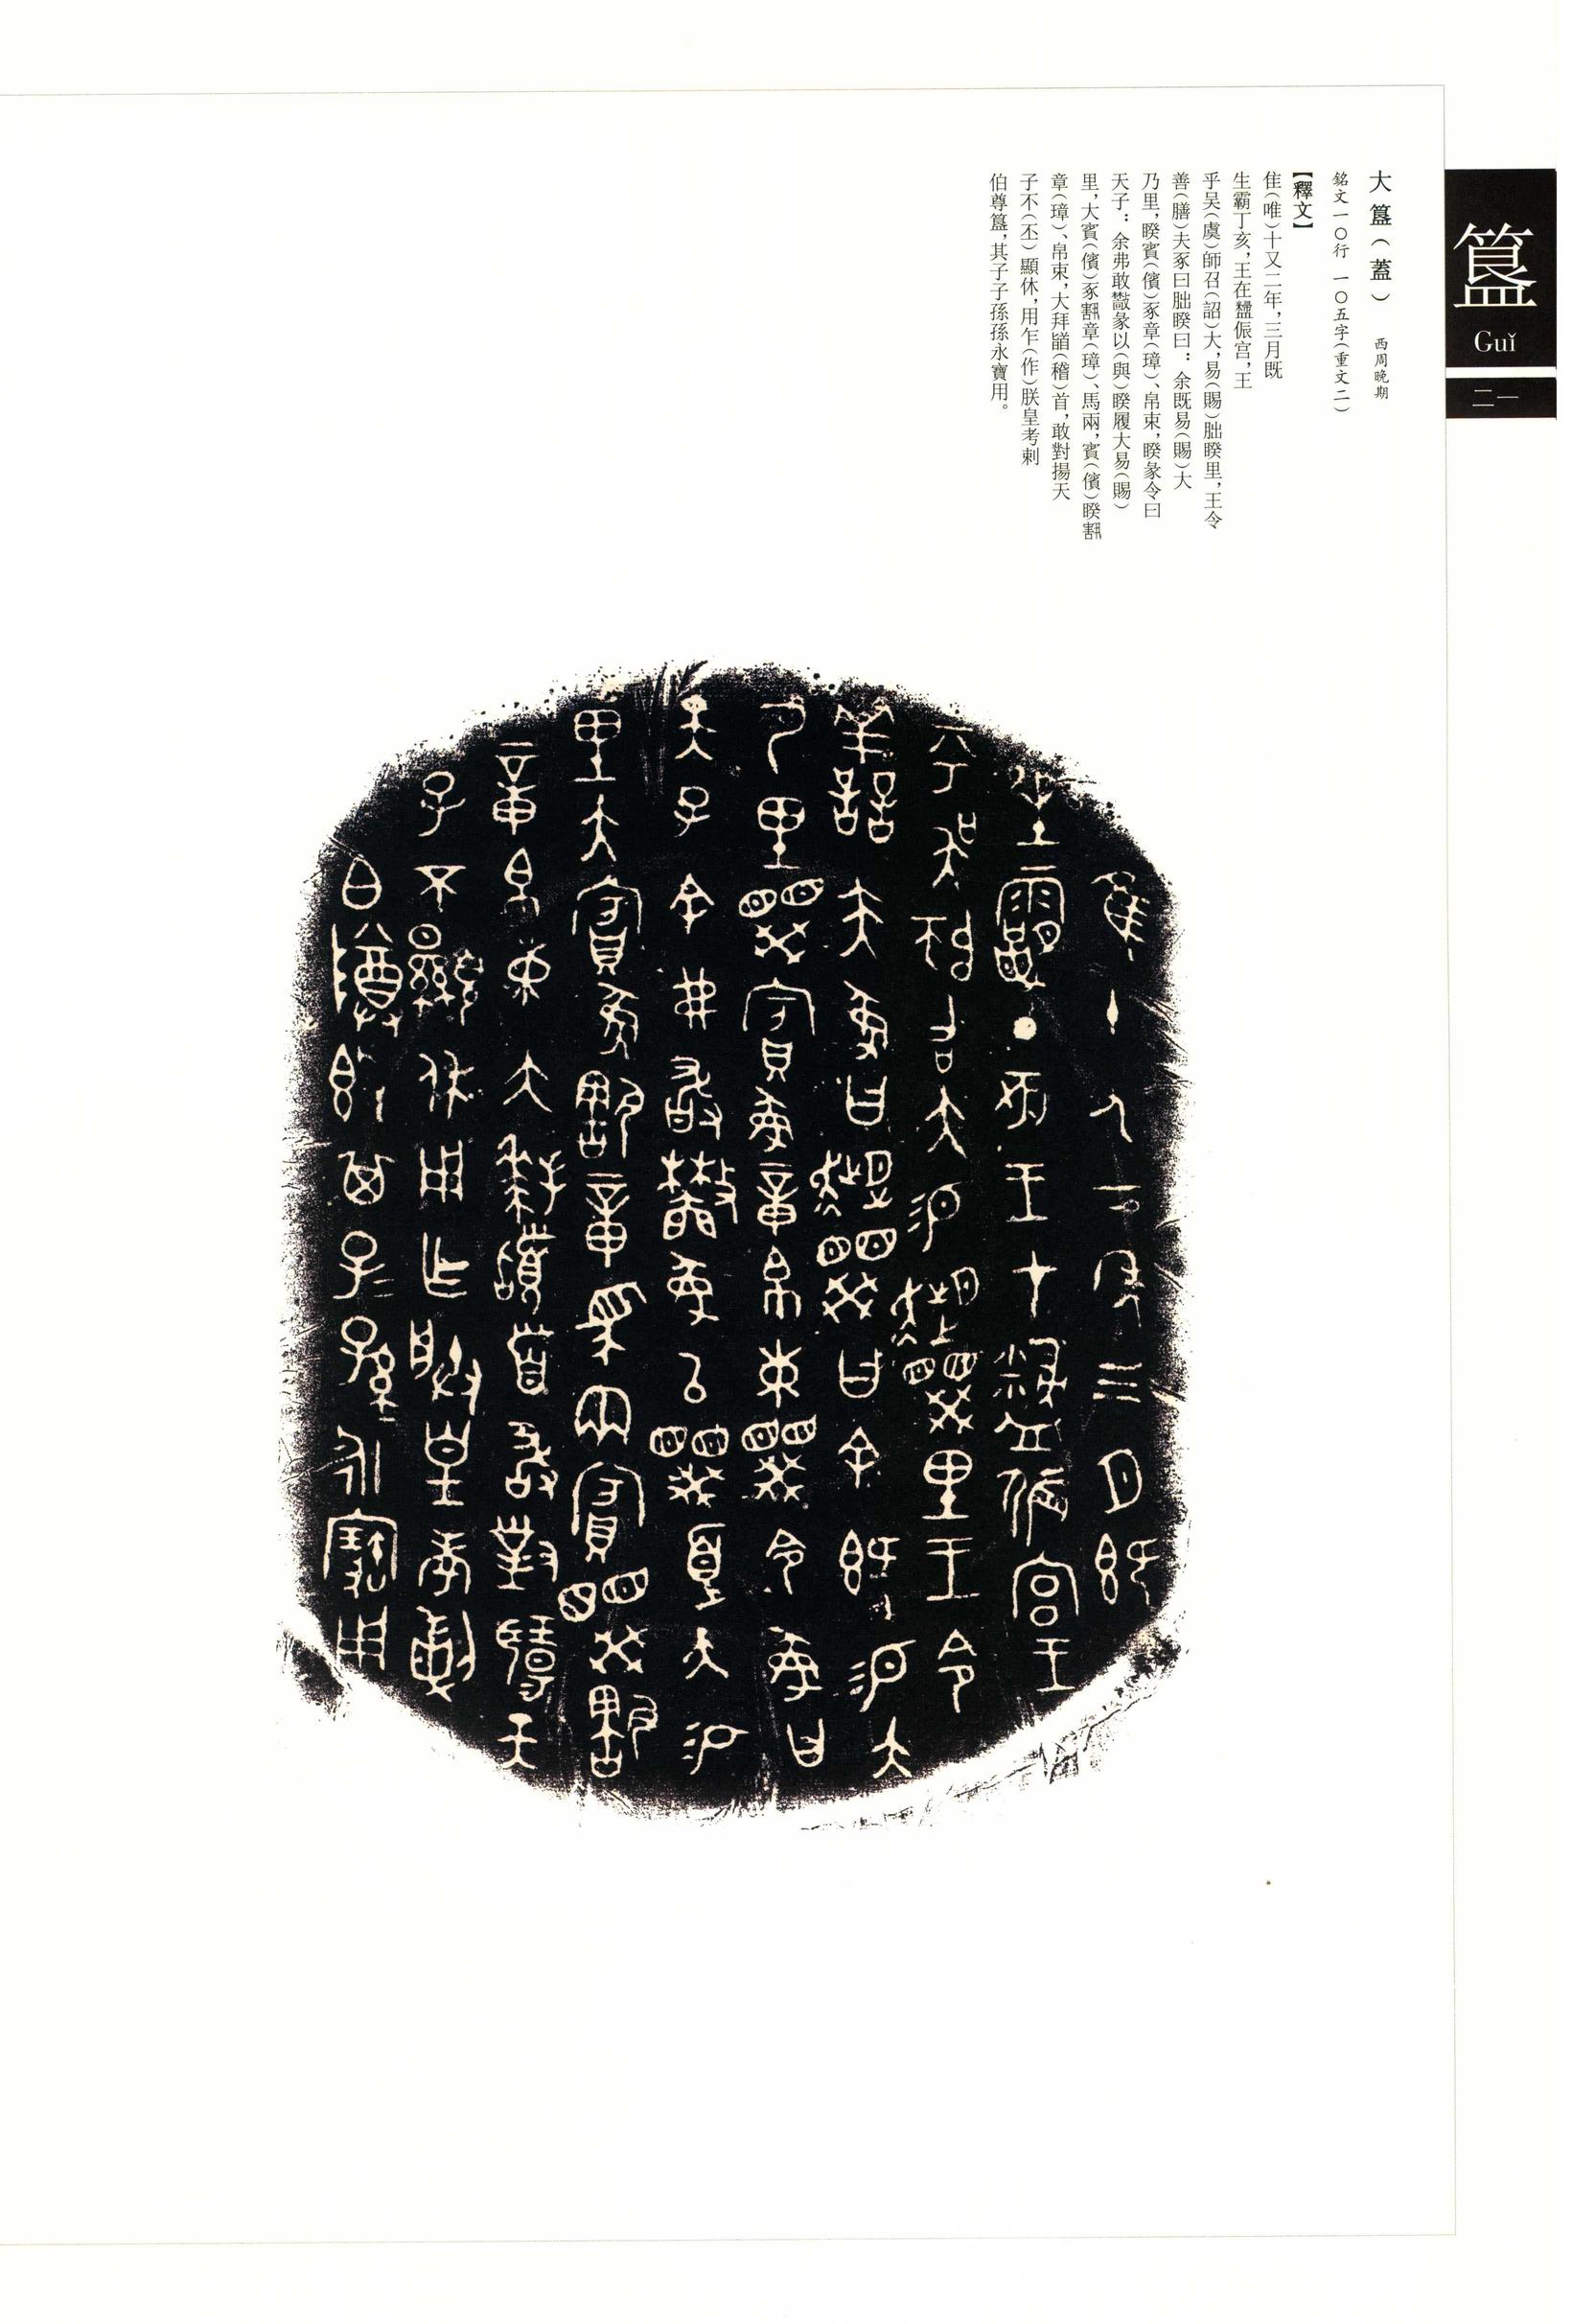 簋
Guǐ
二一
大簋（蓋） 西周晚期
銘文一〇行 一〇五字（重文二）
【釋文】
隹（唯）十又二年，三月既
生霸丁亥，王在侲宮，王
乎吴（虞）師召（詔）大，易（賜）朏睽里，王令
善（膳）夫豖曰朏睽曰：余既易（賜）大
乃里，睽賓（儐）豖章（璋）、帛束，睽彖令曰
天子：余弗敢彖以（與）睽履大易（賜）
里，大賓（儐）豖章（璋）、馬兩，賓（儐）睽
章（璋）、帛束，大拜（稽）首，敢對揚天
子不（丕）顯休，用乍（作）朕皇考剌
伯尊簋，其子子孫孫永寶用。